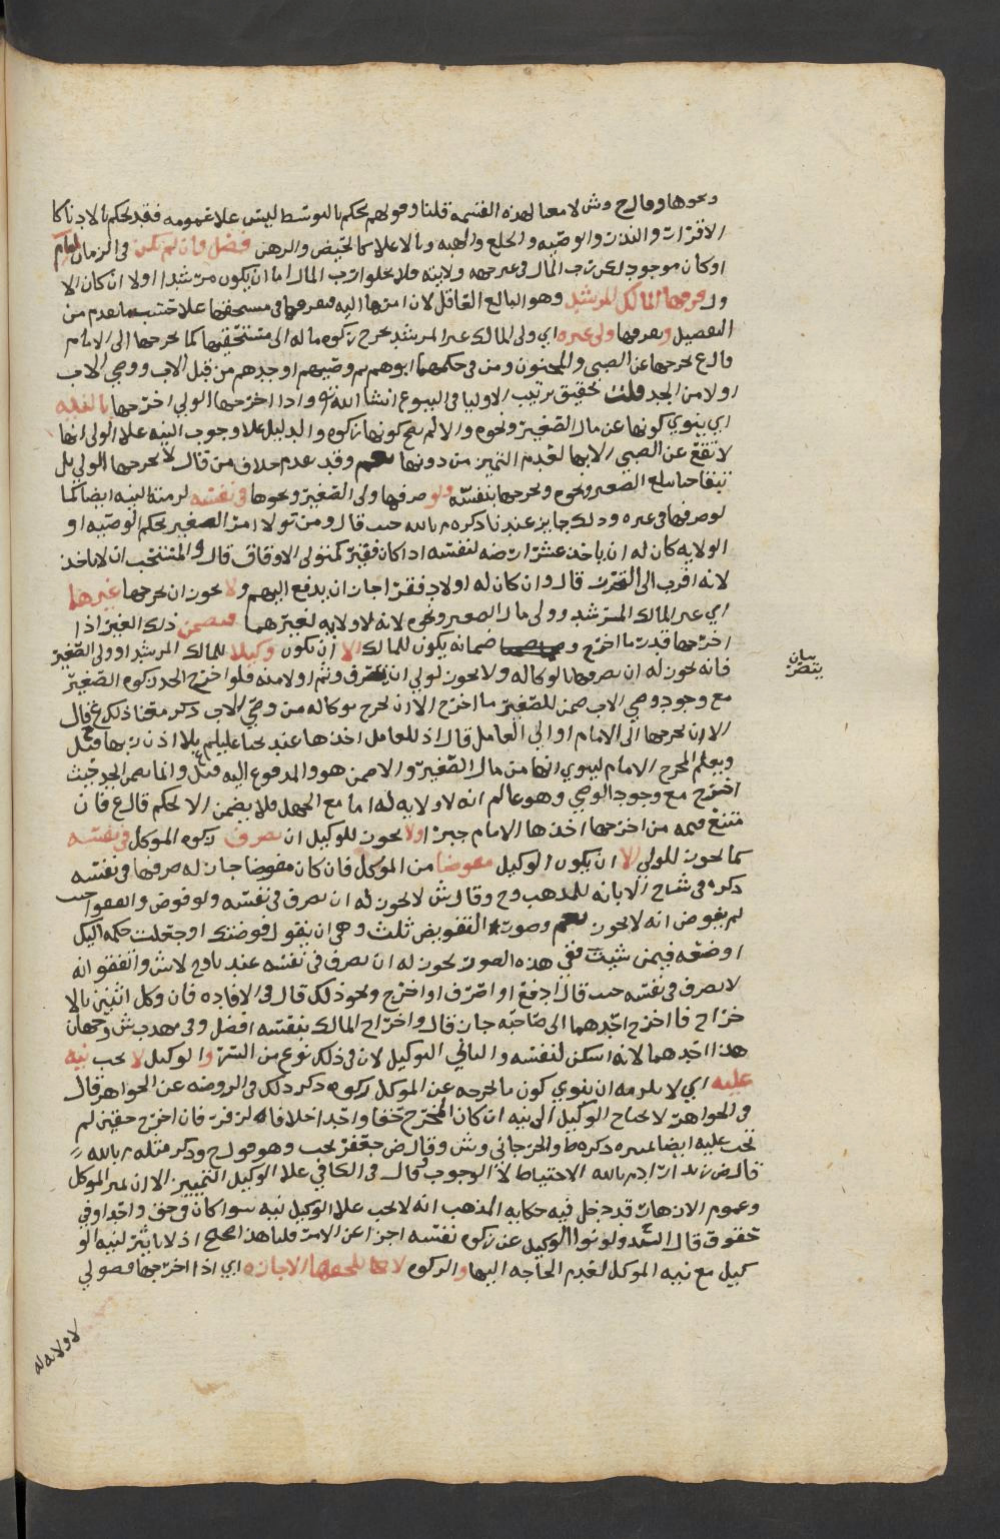 ونحوها وقال ح وش لا معنا لهذه القسمه قلنا وقولهم يحكم بالتوسط ليس علا عمومه فقد يحكم بالادنا كا
لاقرار والنذر والوصيه والخلع والهبه وبالاعلا كالحيض والرهن فصل فان لم يكن في الزمان امام
او كان موجود لكن رب المال في غير جهه ولايته فلا يخلوا رب المال اما ان يكون مرشدا اولا ان كان الا
ول فرقها المالك المرشد وهو البالغ العاقل لان امرها اليه فيفرقها في مستحقها علا حسب ما تقدم من
التفصيل ويفرقها ولي غيره اي ولي المالك غير المرشد يخرج زكوه ماله الى مستحقيها كما يخرجها الى الامام
قال ع يخرجها عن الصبي والمجنون ومن في حكمهما ابوهم ثم وصيهم او جدهم من قبل الاب ووصي الاب
اولا من الجد قلت تحقيق ترتيب الاوليا في البيوع انشا الله واذا اخرجها الولي اخرجها بالنيه
اي ينوي كونها عن مال الصغير ونحوه والا لم يصح كونها زكوه والدليل علا وجوب النيه علا الولي انها
لا تقع عن الصبي الا بها لعدم التمييز من دونها نعم وقد عدم خلاف من قال لا يخرجها الولي بل
تبقا حتى يبلغ الصغير ونحوه ويخرجها بنفسه ولو صرفها ولي الصغير ونحوها في نفسه لزمته النيه ايضا كما
لو صرفها في غيره وذلك جايز عندنا ذكره م بالله حيث قال ومن تولا امر الصغير بحكم الوصيه او
الولايه كان له ان ياخذ عشر ارضه لنفسه اذا كان فقير كمتولي الاوقاف قال والمستحب ان لا ياخذ
لانه اقرب الى التحرز قال وان كان له اولاد فقرا جاز ان يدفع اليهم ولا يجوز ان يخرجها غيرهما
اي غير المالك المرشد وولي مال الصغير ونحوه لانه لا ولايه لغيرهما فيضمن ذلك الغير اذا
اخرجها قدر ما اخرج و ضمانه يكون للمالك الا ان يكون وكيلا للمالك المرشد او ولي الصغير
فانه يجوز له ان يصرفها بالوكاله ولا يجوز لولي ان يتصرف وثم اولا منه فلو اخرج الجد زكوه الصغير
بيان
يتصر
مع وجود وصي الاب ضمن للصغير ما اخرج الا ان يخرج بوكاله من وصي الاب ذكر معنا ذلك ع قال
الا ان يخرجها الى الامام او الى العامل قال اذ للعامل اخذها عند يحيا عليلم بلا اذن ربها قيل
ويعلم المخرج الامام لينوي انها من مال الصغير والا ضمن هو والمدفوع اليه قيل وانما يضمن الجد حيث
اخرج مع وجود الوصي وهو عالم انه لا ولايه له اما مع الجهل فلا يضمن الا بحكم قال ع فان
متنع قيمه من اخرجها اخذها الامام جبرا ولا يجوز للوكيل ان يصرف زكوه الموكل في نفسه
كما يجوز للولي الا ان يكون الوكيل مفوضا من الموكل فان كان مفوضا جاز له صرفها في نفسه
ذكره في شرح الابانه للمذهب وح وقال ش لا يجوز له ان يصرف في نفسه ولو فوض واتفقوا حيث
لم يفوض انه لا يجوز نعم وصور التفويض ثلث وهي ان يقول فوضتك او جعلت حكمه اليك
او ضعه فيمن شيت ففي هذه الصور يجوز له ان يصرف في نفسه عندنا وح لا ش واتفقوا انه
لا يصرف في نفسه حيث قال ادفع او اصرف او اخرج ونحو ذلك قال في الافاده فان وكل اثنين بالا
خراج فاخرج احدهما الى صاحبه جاز قال واخراج المالك بنفسه افضل وفي مهذب ش وجهان
هذا احدهما لانه اسكن لنفسه والثاني التوكيل لان في ذلك نوع من الستر والوكيل لا يجب نيه
عليه اي لا يلزمه ان ينوي كون ما يخرجه عن الموكل زكوه ذكر ذلك في الروضه عن الجواهر قال
في الجواهر لا يحتاج الوكيل الى نيه ان كان المخرج حقا واحدا خلافا لزفر فان اخرج حقين لم
تجب عليه ايضا نيه ذكره ط والجرجاني وش وقال ض جعفر يجب وهو قول ح وذكر مثله م بالله
قال ض زيد اراد م بالله الاحتياط لا الوجوب وقال في الكافي علا الوكيل التمييز الا ان نيه الموكل
وعموم الازهار قد دخل فيه حكايه المذهب انه لا يجب علا الوكيل نيه سوا كان في حق واحد او في
حقوق قال السيد ولو نوا الوكيل عن زكوه نفسه اجزا عن الامر قلنا هذا صحيح اذ لا تاثير لنيه الو
كيل مع نيه الموكل لعدم الحاجه اليها والزكوه لا تلحقها الاجازه اي اذا اخرجها فضولي
لا ولايه له